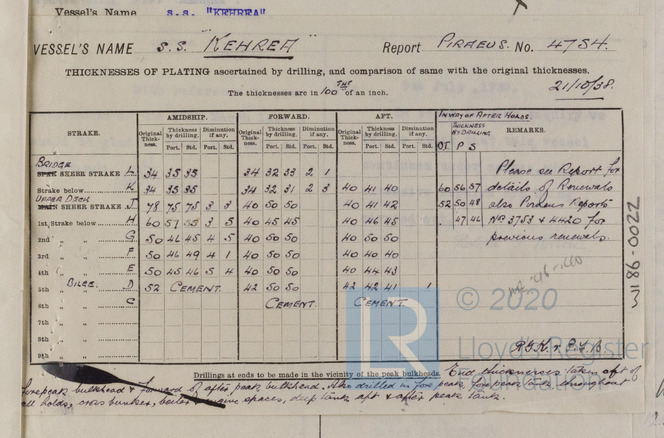 Vessel's Name S.S. "KEHREA"
VESSEL'S NAME S.S. "KEHREA" Report PIRAEUS. No. 4754.
THICKNESSES OF PLATING ascertained by drilling, and comparison of same with the original thicknesses.
The thicknesses are in 100THS of an inch. 21/10/38.
AMIDSHIP. FORWARD. AFT. IN WAY OF AFTER HOLDS.
STRAKE. Original Thickness. Thickness by drilling. Diminution if any. Original Thickness. Thickness by drilling. Diminution if any. Original Thickness. Thickness by drilling. Diminution if any. THICKNESS BY DRILLING REMARKS.
Port. Std. Port. Std. Port. Std. Port. Std. Port. Std. Port. Std. OT. P S
BRIDGE
SHEER STRAKE L 34 35 35 34 32 33 2 1 Please see Report for
Strake below K 34 35 35 34 32 31 2 3 40 41 40 60 56 57 details of Renewals
UPPER DECK
SHEER STRAKE J 78 75 75 3 3 40 50 50 40 41 42 52 50 48 also Piraeus Reports
1st Strake below H 60 57 55 3 5 40 45 45 40 46 45 47 46 Nos 3753 & 4420 for
2nd " " G 50 46 45 4 5 40 50 50 40 50 50 previous renewals.
3rd " " F 50 46 49 4 1 40 50 50 40 40 40
4th " " E 50 45 46 5 4 40 50 50 40 44 43
5th " BILGE D 52 CEMENT. 42 50 50 42 42 41 1
6th " " C CEMENT. CEMENT.
7th " "
8th " "
9th " "
Drillings at ends to be made in the vicinity of the peak bulkheads. End thicknesses taken aft of
forepeak bulkhead & forward of after peak bulkhead. Also drilled in fore peak, fore peak tank throughout
all holds, cross bunker, boiler & engine spaces, deep tank aft & after peak tank.
1186-0022
© 2020
Lloyd's Register
Foundation